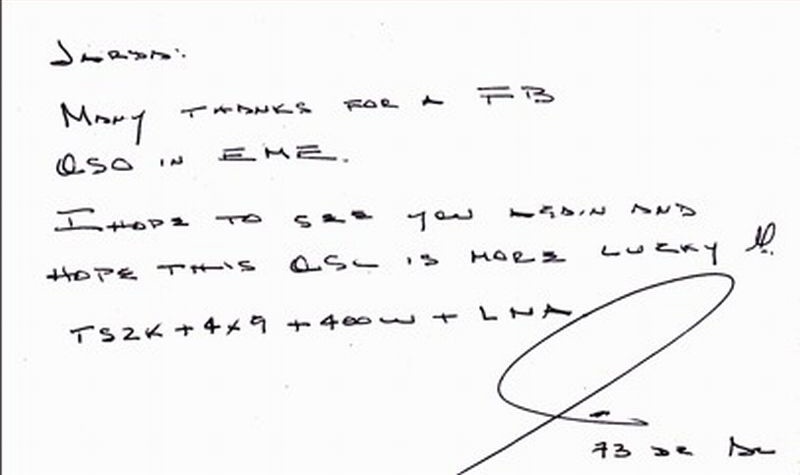 Jarda:
Many thanks for a FB
QSO in EME.
I hope to see you again and
hope this QSL is more lucky !!
TS2K + 4x9 + 400w + LNA
73 de